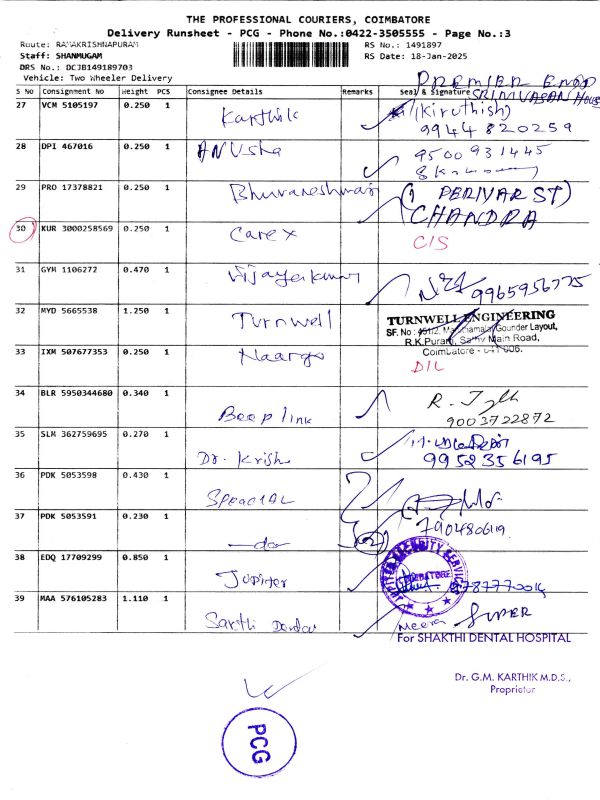 THE PROFESSIONAL COURIERS, COIMBATORE
Delivery Runsheet - PCG - Phone No.:0422-3505555 - Page No.:3
Route: RAMAKRISHNAPURAM
RS No.: 1491897
Staff: SHANMUGAM
RS Date: 18-Jan-2025
DRS No.: DCJB149189703
Vehicle: Two Wheeler Delivery
PREMIER ENOD
SRINIVASAN HOUSE
S No Consignment No Weight PCS Consignee Details Remarks Seal & Signature
27 VCM 5105197 0.250 1 Karthik (Kiruthish)
9944820259
28 DPI 467016 0.250 1 ANUsha 9500931445
29 PRO 17378821 0.250 1 Bhuvaneshwari (1 PERIYAR ST)
CHANDRA
30 KUR 3000258569 0.250 1 Carex C/S
31 GYM 1106272 0.470 1 Vijayakumar 9965956775
32 MYD 5665538 1.250 1 Turnwell TURNWELL ENGINEERING
SF. No : 451/2, Gounder Layout,
R.K.Puram, Sathy Main Road,
Coimbatore - 641 006.
33 IXM 507677353 0.250 1 Naargo D/L
34 BLR 5950344680 0.340 1 Beeplink R.
9003722872
35 SLM 362759695 0.270 1 Dr. Krish
9952356195
36 PDK 5053598 0.430 1 Special
7904806119
37 PDK 5053591 0.230 1 —do— (2)
38 EDQ 17709299 0.850 1 Jupiter SECURITY SERVICES
COIMBATORE
8787770014
39 MAA 576105283 1.110 1 Sakthi Dental Meera SUPER
For SHAKTHI DENTAL HOSPITAL
Dr. G.M. KARTHIK M.D.S.,
Proprietor
PCG